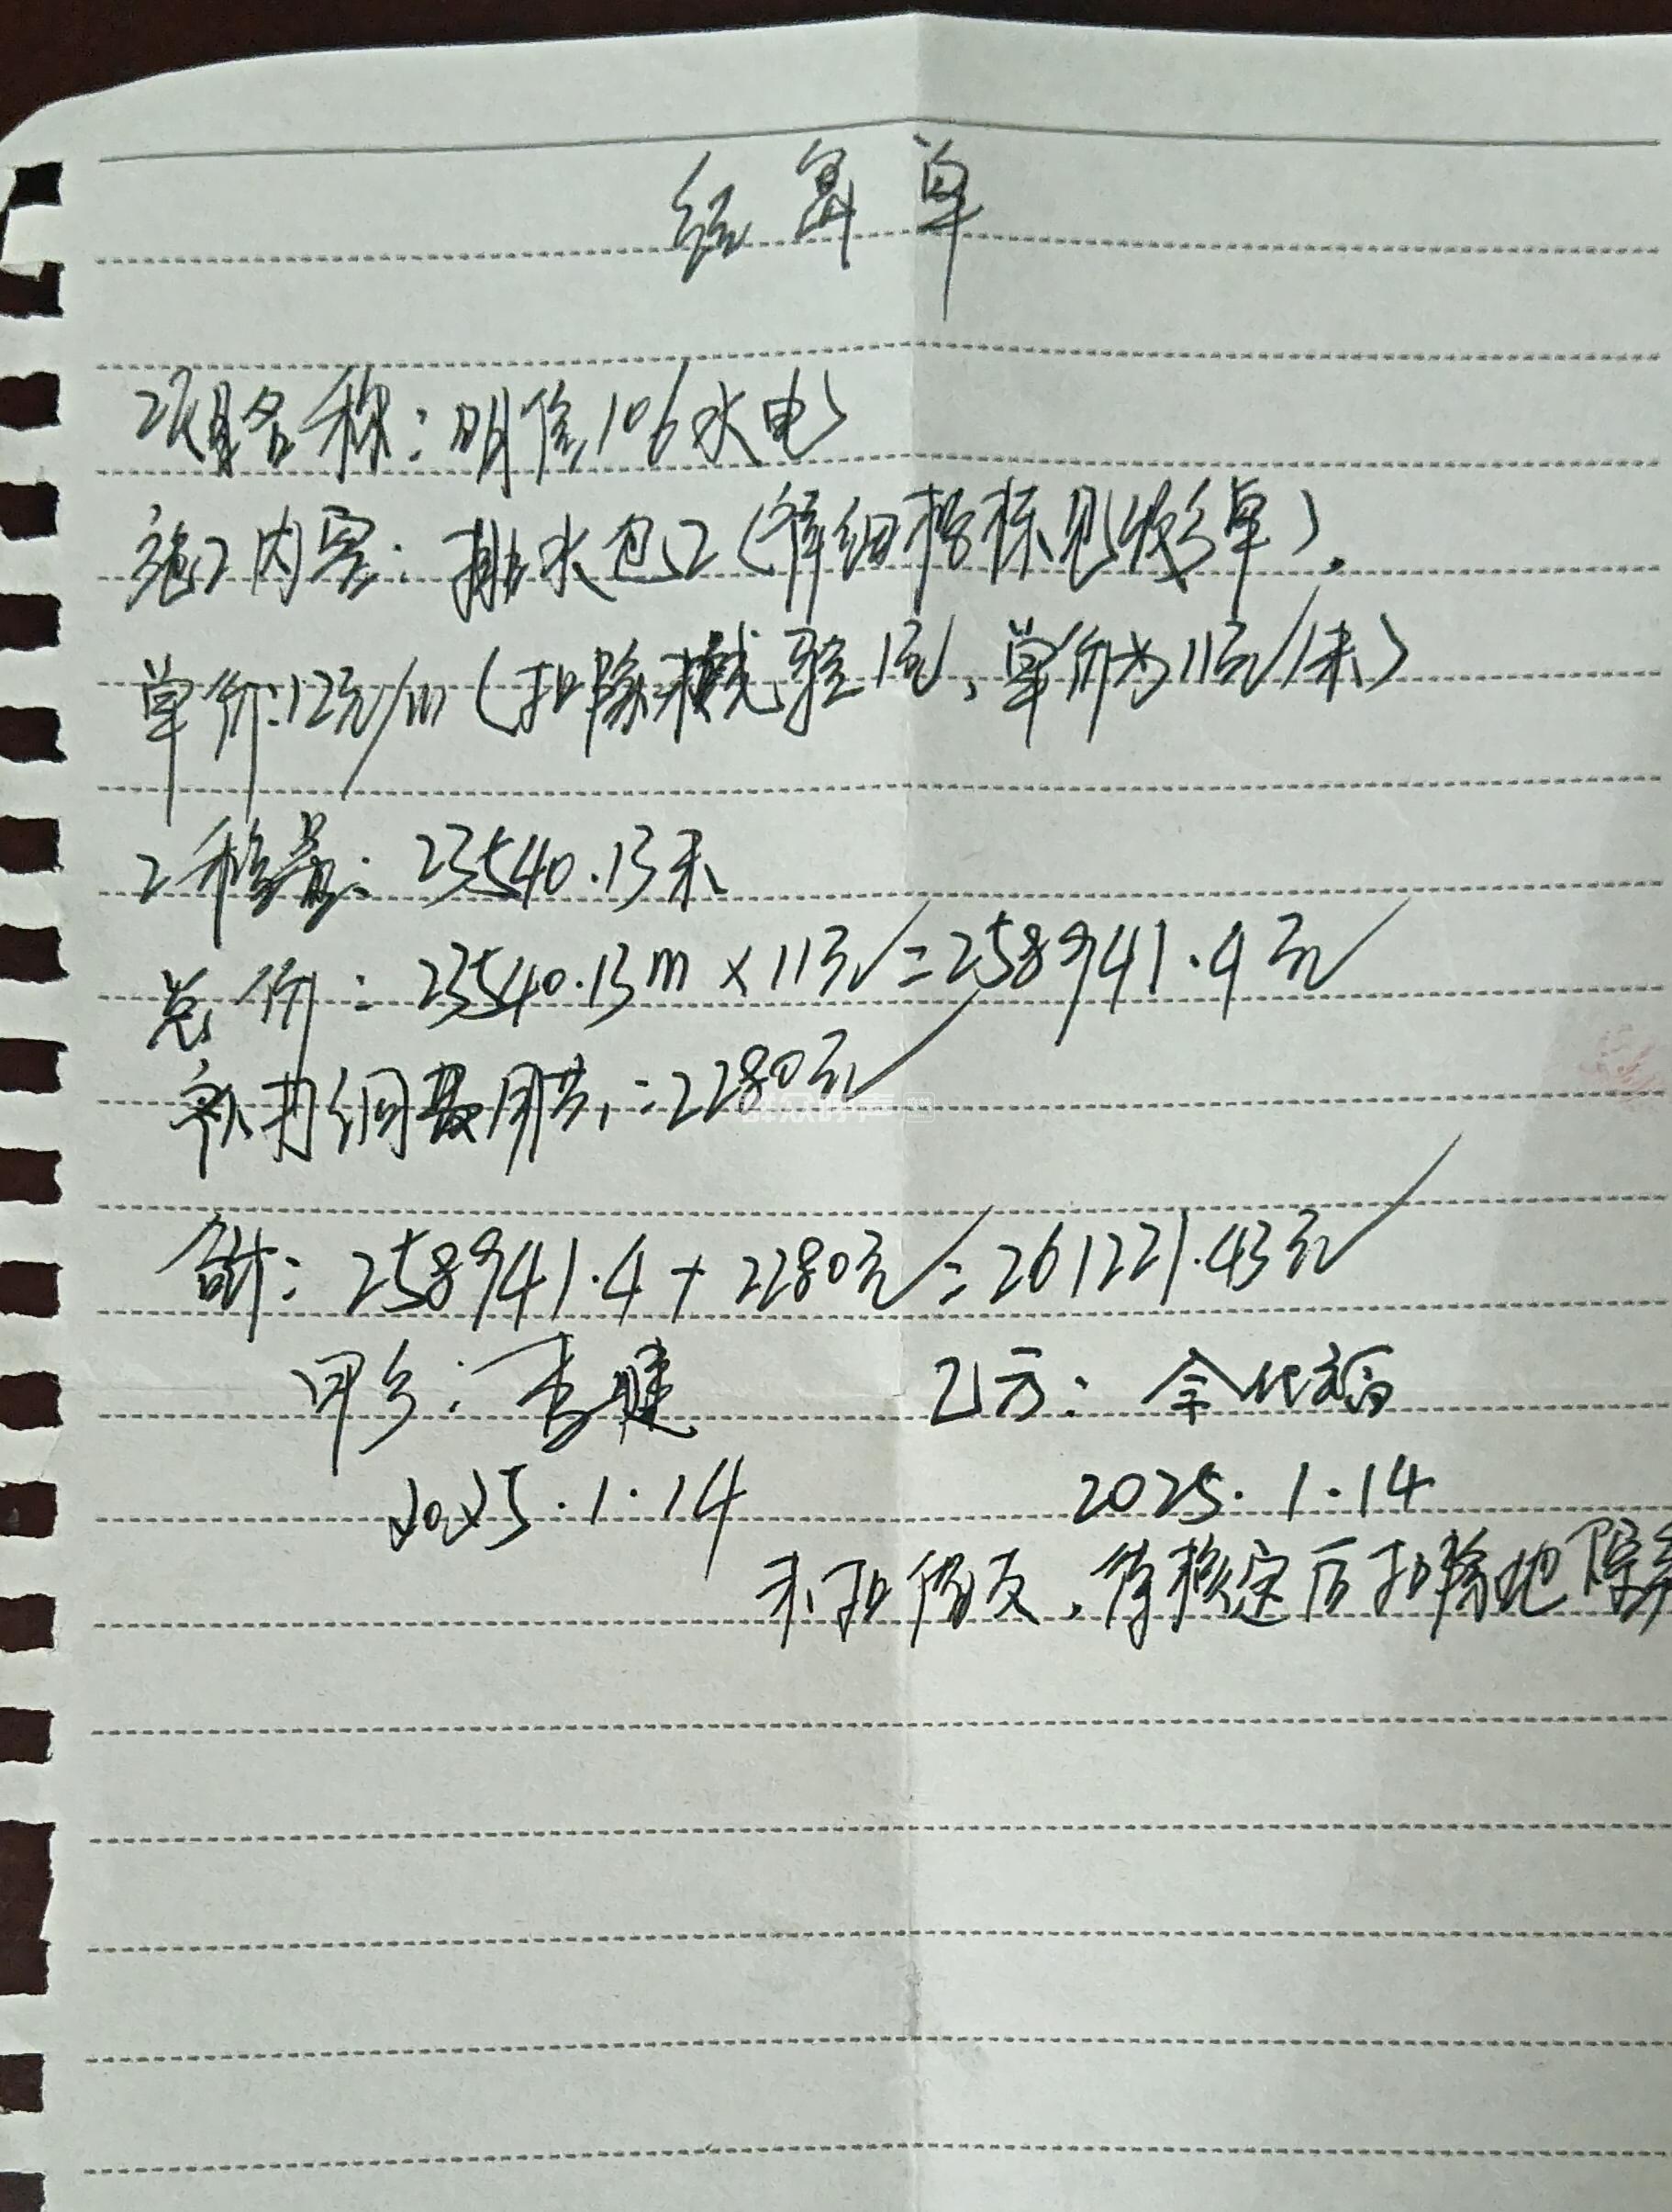 结算单
工项目名称：明信106水电
施工内容：排水包工（详细指标见收方单）。
单价：12元/m（扣除 验1元，单价为11元/米）
工程量：23540.13米
总价：23540.13m×11元=258941.4元
费用共：=2280元
合计：258941.4+2280元=261221.43元
甲方：李健 乙方：余代福
2025.1.14 2025.1.14
未扣借支，待核定后扣除